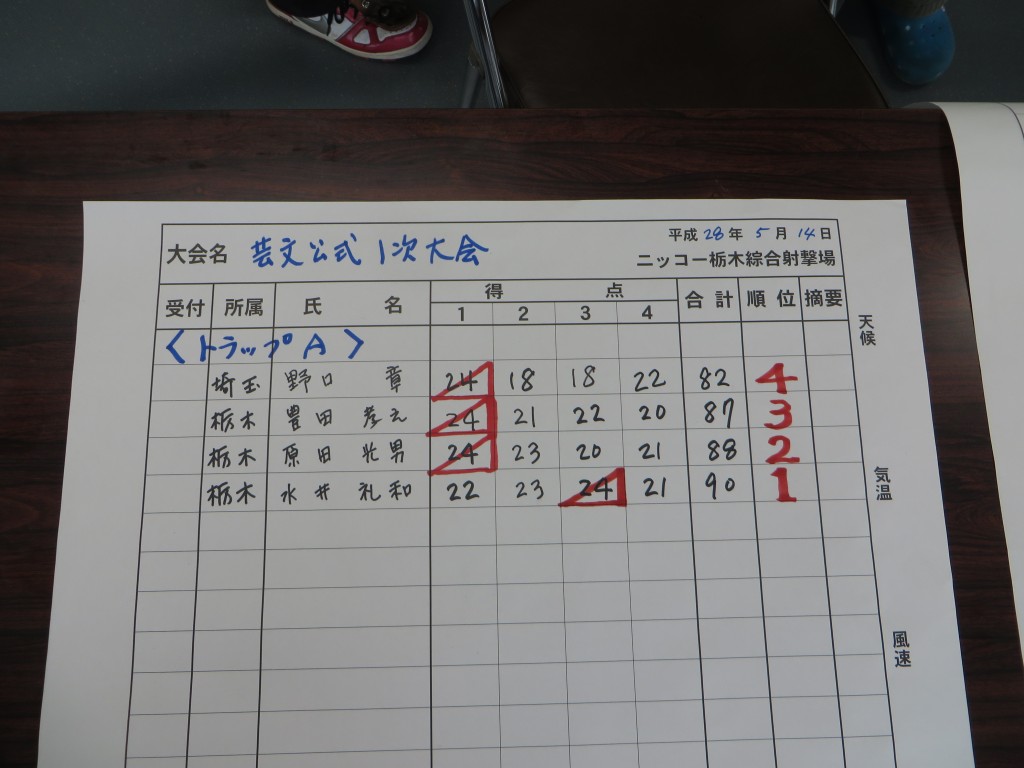 平成 28 年 5 月 14 日
大会名 芸文公式1次大会
ニッコー栃木綜合射撃場
受付 所属 氏 名 得 点 合計 順位 摘要
1 2 3 4
天候
〈トラップA〉
埼玉 野口 章 24 18 18 22 82 4
栃木 豊田 彦 24 21 22 20 87 3
栃木 原田 男 24 23 20 21 88 2
栃木 水井 礼和 22 23 24 21 90 1
気温
風速